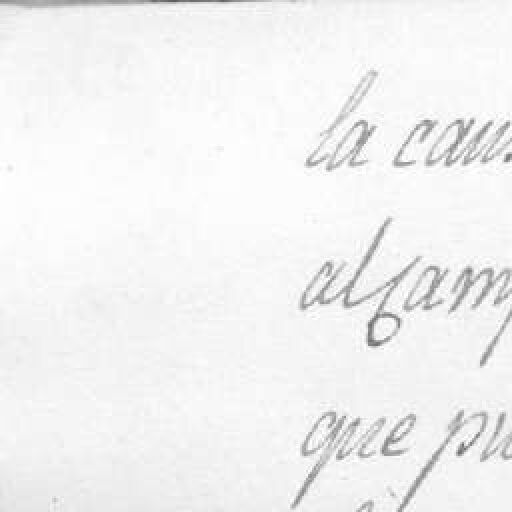 la caus
al Camp
que pu